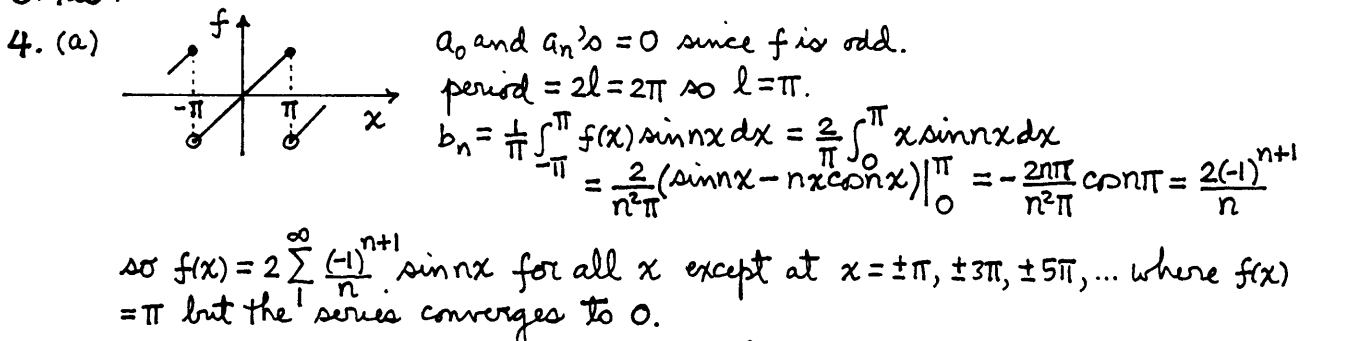 4. (a)
f
-π π x
a₀ and aₙ's = 0 since f is odd.
period = 2l = 2π so l = π.
bₙ = 1/π ∫_{-π}^{π} f(x) sin nx dx = 2/π ∫_0^π x sin nx dx
= 2/(n²π) (sin nx - nx cos nx)|_0^π = - 2nπ/(n²π) cos nπ = 2(-1)^{n+1}/n
so f(x) = 2 ∑_1^∞ (-1)^{n+1}/n sin nx for all x except at x = ±π, ±3π, ±5π, ... where f(x)
= π but the series converges to 0.